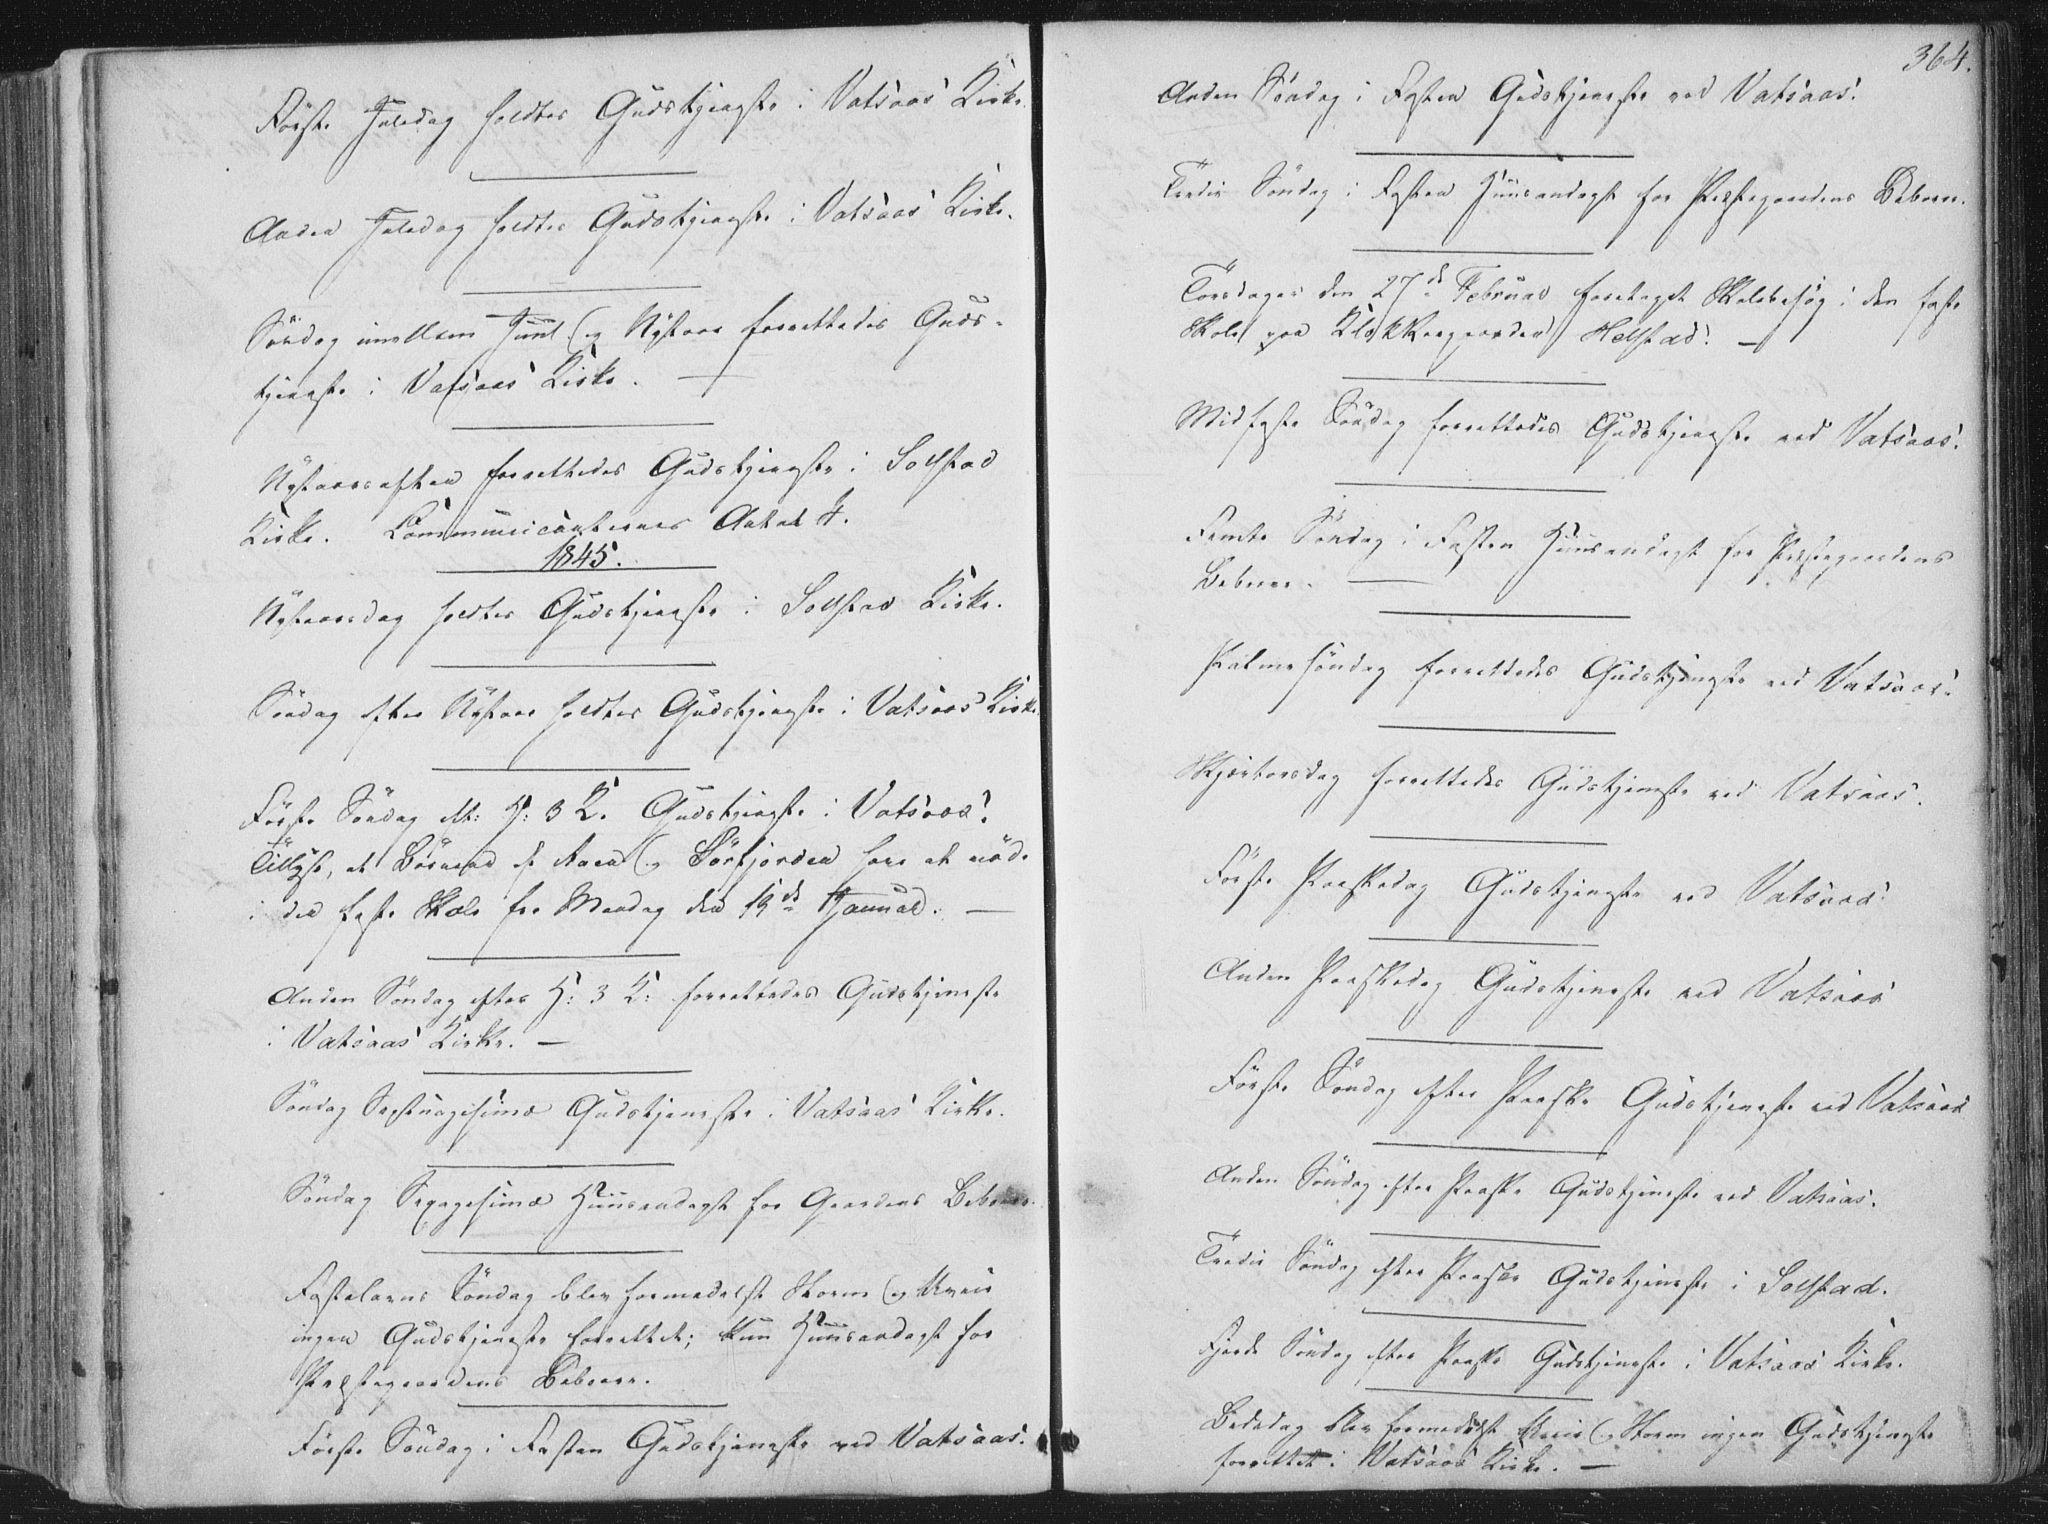 Første Juledag holdtes Gudstjeneste i Vatsaas' Kirke.
Anden Juledag holdtes Gudstjeneste i Vatsaas' Kirke.
Søndag imellem Juul og Nytaar forrettedes Guds-
tjeneste i Vatsaas' Kirke. —
Nytaarsaften forrettedes Gudstjeneste i Solstad
Kirke. Communicanternes Antal 4.
1845.
Nytaarsdag holdtes Gudstjeneste i Solstad Kirke.
Søndag efter Nytaar holdtes Gudstjeneste i Vatsaas' Kirke.
Første Søndag eft: H: 3 K. Gudstjeneste i Vatsaas'.
Tillyst, at Børnene af Aaen og Sørfjorden have at møde
i den faste Skole fra Mandag den 13de Januar. —
Anden Søndag efter H: 3 K: forrettedes Gudstjeneste
i Vatsaas' Kirke. —
Søndag Septuagesimæ Gudstjeneste i Vatsaas' Kirke.
Søndag Sexagesimæ Huusandagt for Gaardens Beboere.
Fastelavns Søndag blev formedelst Storm og Uveir
ingen Gudstjeneste forrettet; kun Huusandagt for
Præstegaardens Beboere.
Første Søndag i Fasten Gudstjeneste ved Vatsaas'.
364.
Anden Søndag i Fasten Gudstjeneste ved Vatsaas'.
Tredie Søndag i Fasten Huusandagt for Præstegaardens Beboere.
Torsdagen den 27de Februar foretaget Skolebesøg i den faste
Skole paa Klokkergaarden Helstad. —
Midfaste Søndag forrettedes Gudstjeneste ved Vatsaas'.
Femte Søndag i Fasten Huusandagt for Præstegaardens
Beboere. —
Palmesøndag forrettedes Gudstjeneste ved Vatsaas'.
Skjærtorsdag forrettedes Gudstjeneste ved Vatsaas'.
Første Paaskedag Gudstjeneste ved Vatsaas'.
Anden Paaskedag Gudstjeneste ved Vatsaas'
Første Søndag efter Paaske Gudstjeneste ved Vatsaas'
Anden Søndag efter Paaske Gudstjeneste ved Vatsaas'.
Tredie Søndag efter Paaske Gudstjeneste i Solstad.
Fjerde Søndag efter Paaske Gudstjeneste i Vatsaas' Kirke.
Bededag blev formedelst Uveir og Storm ingen Gudstjeneste
forrettet i Vatsaas' Kirke. —